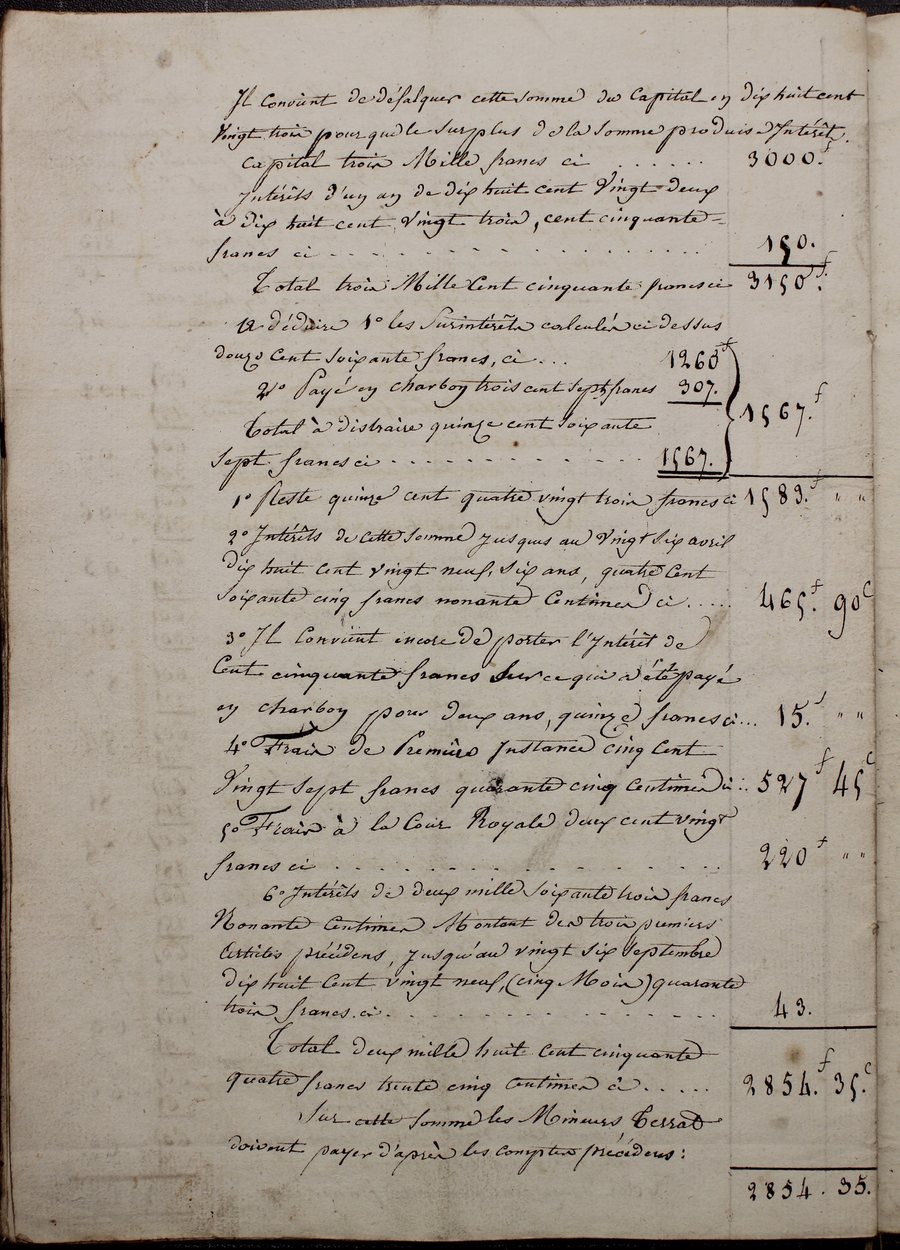 Il convient de défalquer cette somme du Capital en dix huit cent
Vingt trois pour que le surplus de la somme produise Intérêt.
Capital trois Mille francs ci ...... 3000.f
Intérêts d'un an de dix huit cent Vingt deux
à dix huit cent vingt trois, cent cinquante
francs ci .............. 150.
Total trois Mille Cent cinquante francs ci 3150.f
à déduire 1° les Surintérêts calculés ci dessus
douze Cent soixante francs, ci ... 1260f
2° Payé en charbon trois cent sept francs 307.
1567.f
Total à distraire quinze cent soixante
sept francs ci ............ 1567.
1° Reste quinze cent quatre vingt trois francs ci 1583.f " "
2° Intérêts de cette somme jusques au Vingt six avril
dix huit cent vingt neuf, six ans, quatre Cent
soixante cinq francs nonante Centimes ci ..... 465.f 90c
3° Il Convient encore de porter l'Intérêt de
Cent cinquante francs sur ce qui a été payé
en charbon pour deux ans, quinze francs ci... 15.f " "
4° Frais de Première Instance cinq Cent
Vingt sept francs quarante cinq Centimes ci .. 527f 45c
5° Frais à la Cour Royale deux cent vingt
francs ci .............. 220f " "
6° Intérêts de deux mille soixante trois francs
Nonante Centimes Montant des trois premiers
articles précédens, jusqu'au vingt six septembre
dix huit Cent vingt neuf, (cinq Mois) quarante
trois francs. ci ............ 43.
Total deux mille huit cent cinquante
quatre francs trente cinq centimes ci ..... 2854.f 35.c
Sur cette somme les Mineurs Terrat
doivent payer d'après les comptes précédens :
2854. 35.